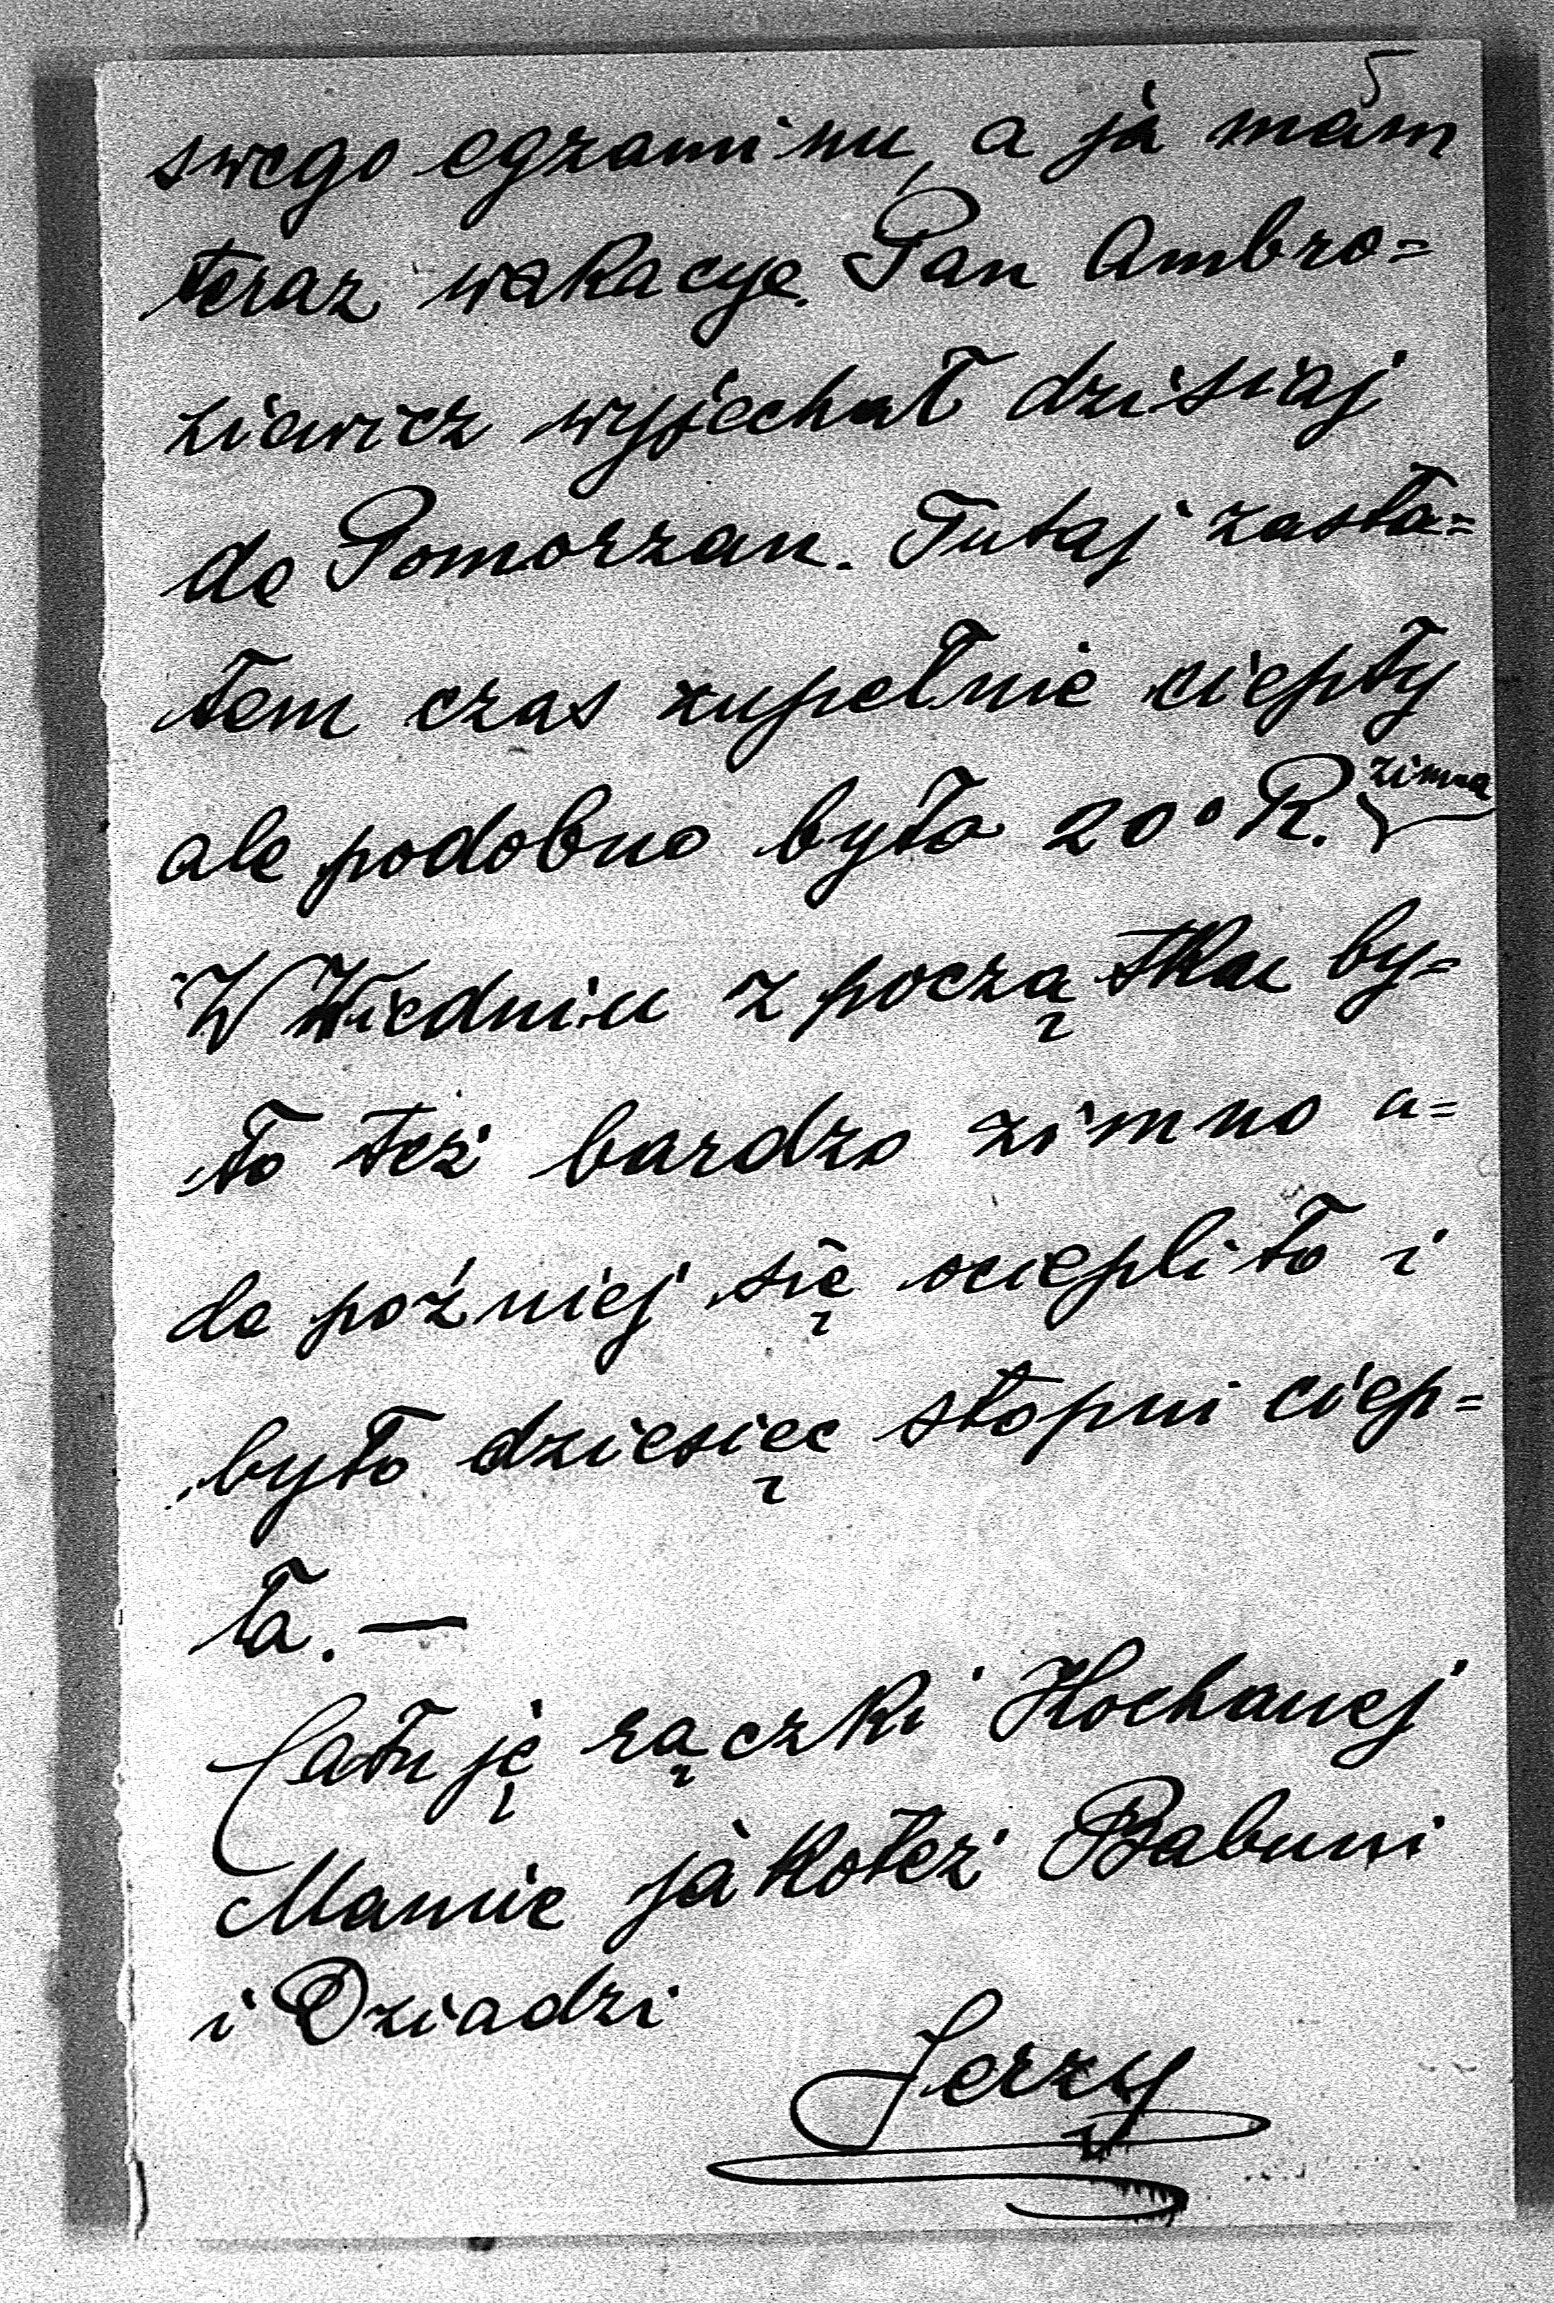 5
swego egzaminu, a ja mam
teraz wakacye. Pan Ambro=
ziewicz wyjechał dzisiaj
do Pomorzan. Tutaj zasta=
łem czas zupełnie ciepły
ale podobno było 20° R. zimna
W Wiedniu z początku by=
ło też bardzo zimno a=
le poźniej się ociepliło i
było dziesięc stopni ciep=
ła. —
Całuję rączki Kochanej
Mamie jakoteż Babuni
i Dziadzi
Jerzy